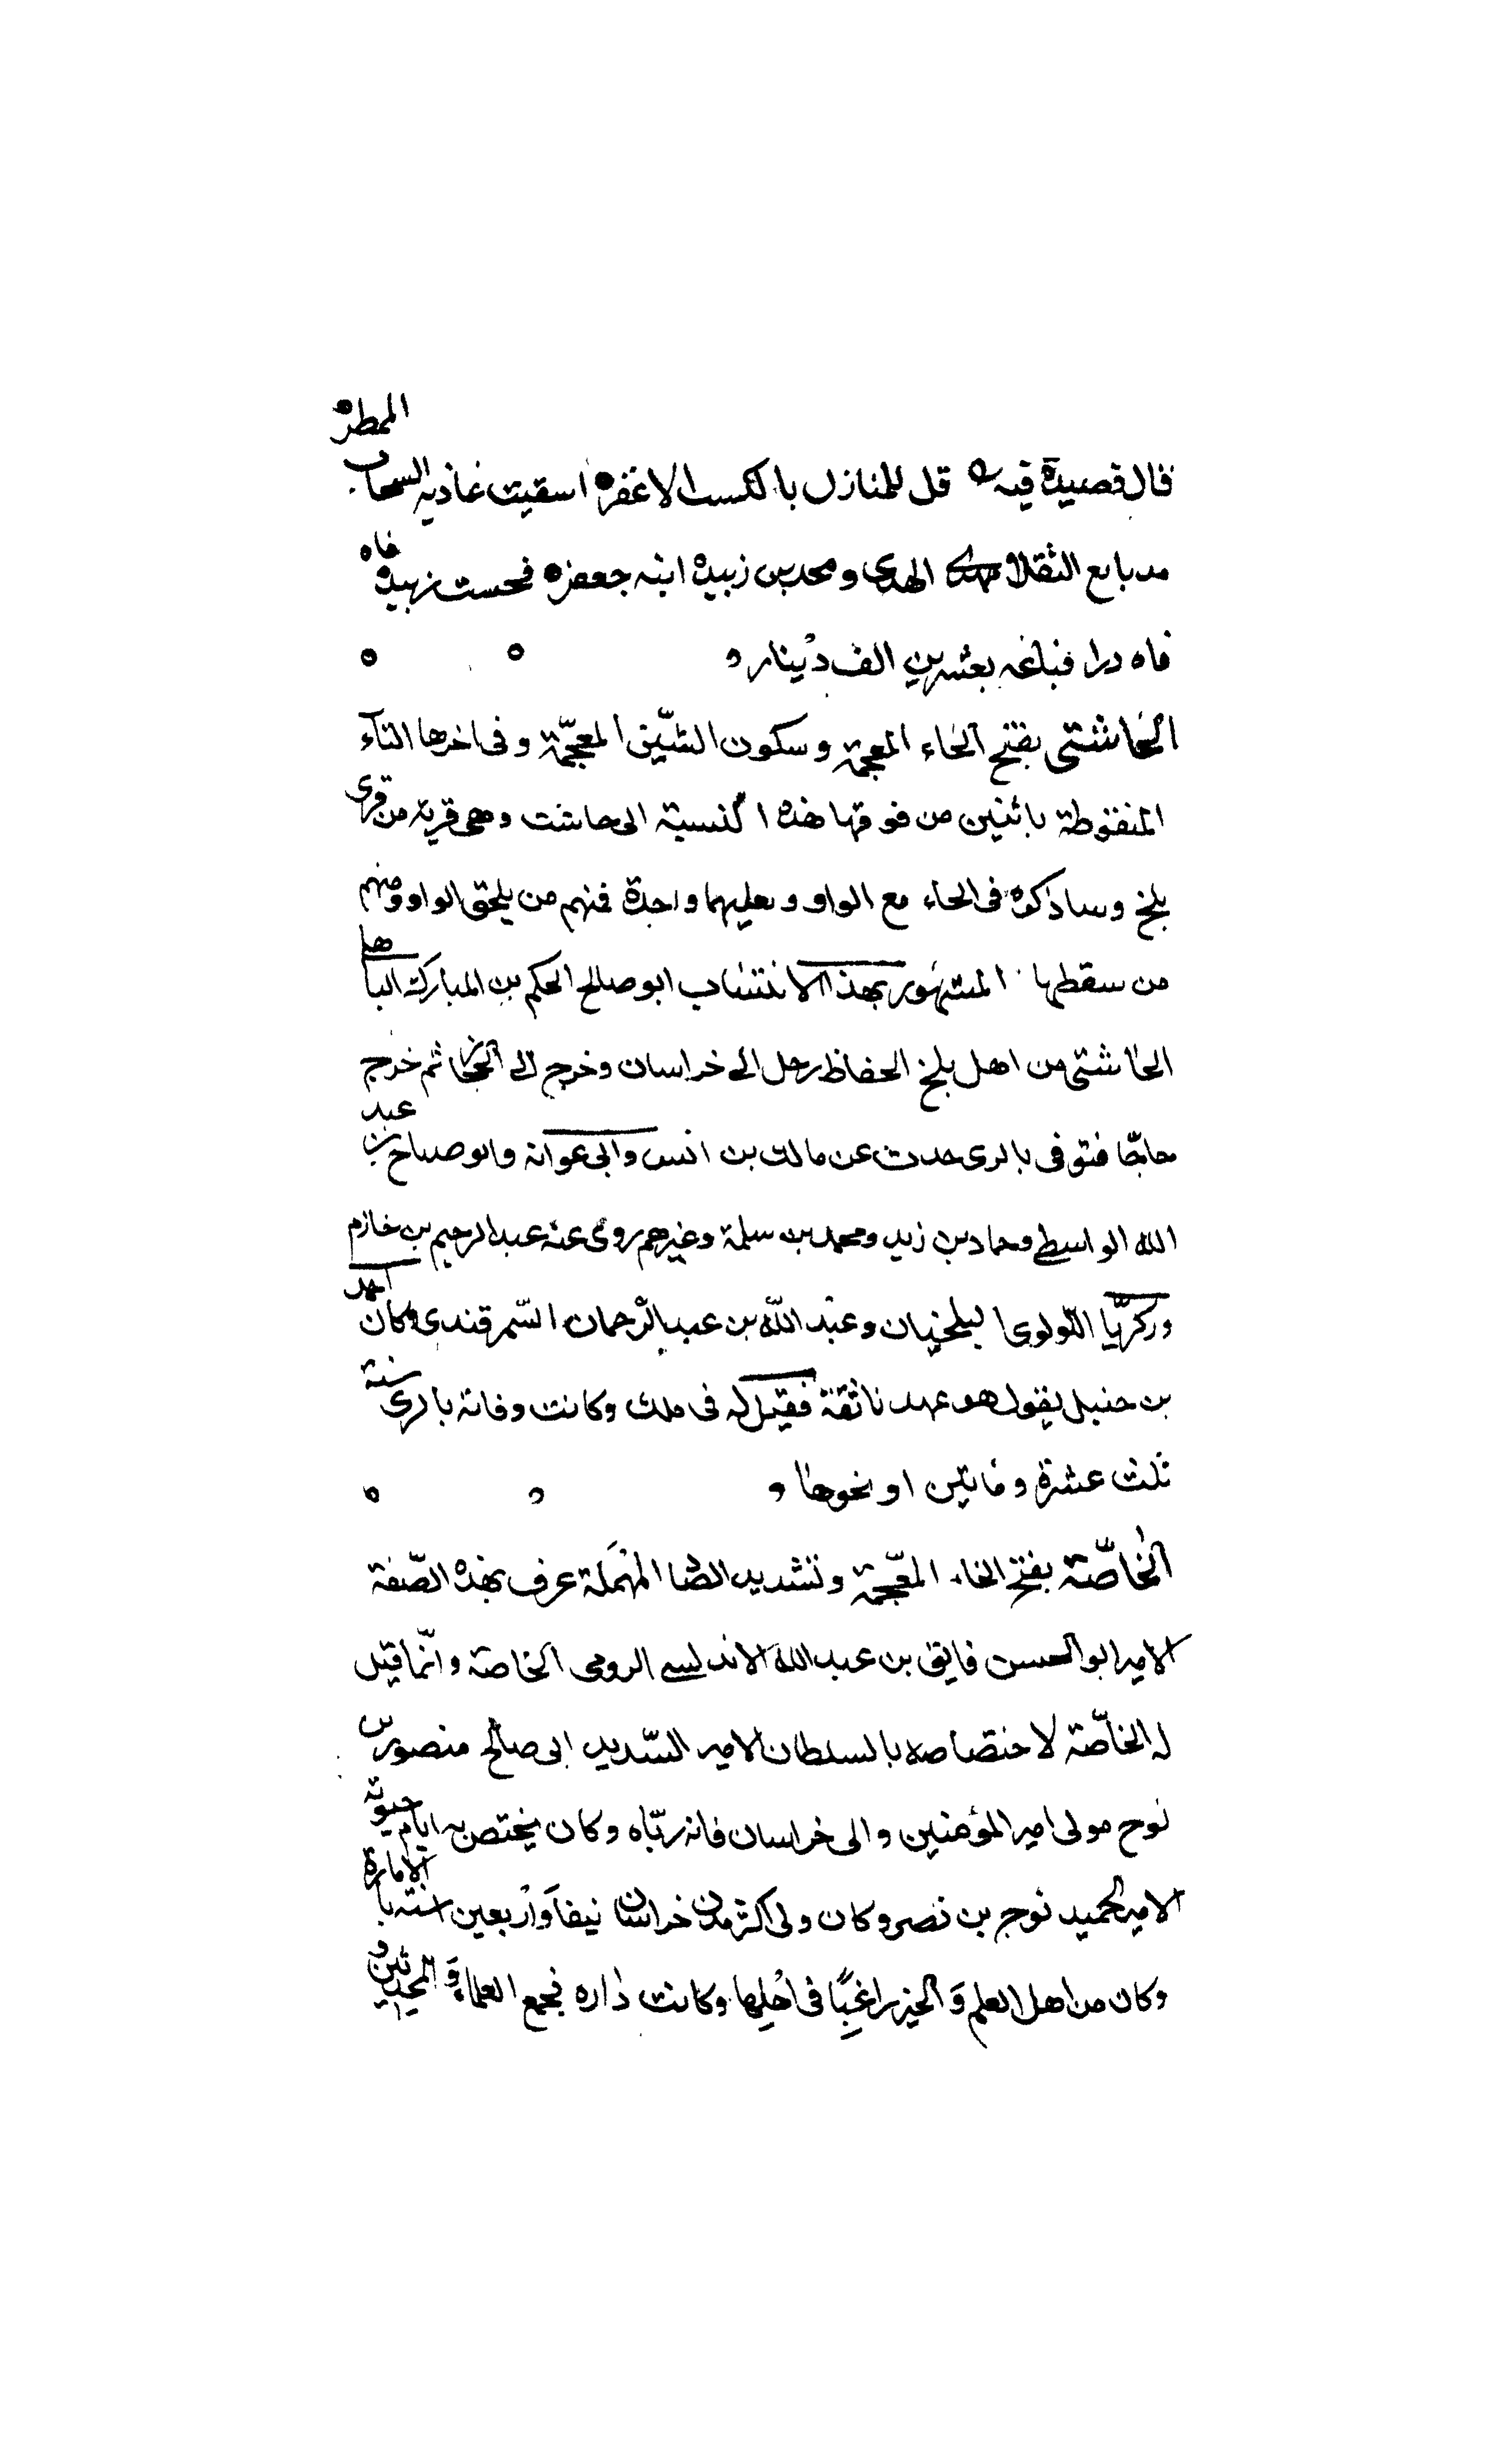 فقال قصيدة فيه قل للمنازل بالكسب الاعفر اسقيت غاديه السحاب الممطر
قد بايع الثقلان مهدى الهدى ومحمد بن زبيدة ابنه جعفر فحست زبيدة فاه
فاه درا فباعه بعشرين الف دينار
الخاشتى بفتح الخاء المعجمة وسكون الشين المعجمة وفى اخرها التاء
المنقوطة باثنين من فوقها هذه النسبة الى خاشت وهى قرية من قرى
بلخ وساذكره فى الخاء مع الواو ولعليهما واحدة فمنهم من يلحق الواو ومنهم
من سقطها المشهور بهذا الانتساب ابو صالح الحكم بن المبارك الباها
الخاشتى من اهل بلخ الحفاظ رحل الى خراسان وخرج الى الخجا ثم خرج
حاجا فتوفى بالرى حدث عن مالك بن انس وابى عوانة وابو صباح بن عبد
الله الواسطى وحماد بن زيد ومحمد بن سلمة وغيرهم روى عنه عبد الرحيم بن خازم
وزكريا اللولوى البلخيان وعبد الله بن عبد الرحمان السمرقندى وكان احمد
بن حنبل يقول هو عهدنا ثقة فقيل له فى ملك وكانت وفاته بالرى سنة
ثلث عشرة وماتين او نحوها
الخاصة بفتح الخاء المعجمة وتشديد الصا المهملة عرف بهذه الصفة
الامير ابو الحسن فايق بن عبد الله الاندلسى الرومى الخاصة وانما قيل
له الخاصة لاختصاصه بالسلطان الامير السديد ابى صالح منصور بن
نوح مولى امير المؤمنين والى خراسان فانه رباه وكان يختص به ايام حيوته
الامير الحميد نوح بن نصر وكان ولى اكثر مدن خراسان نيفا واربعين سنة بالامارة
وكان من اهل العلم والخير راغبا فى اهلها وكانت داره مجمع العلماء والمحدثين و